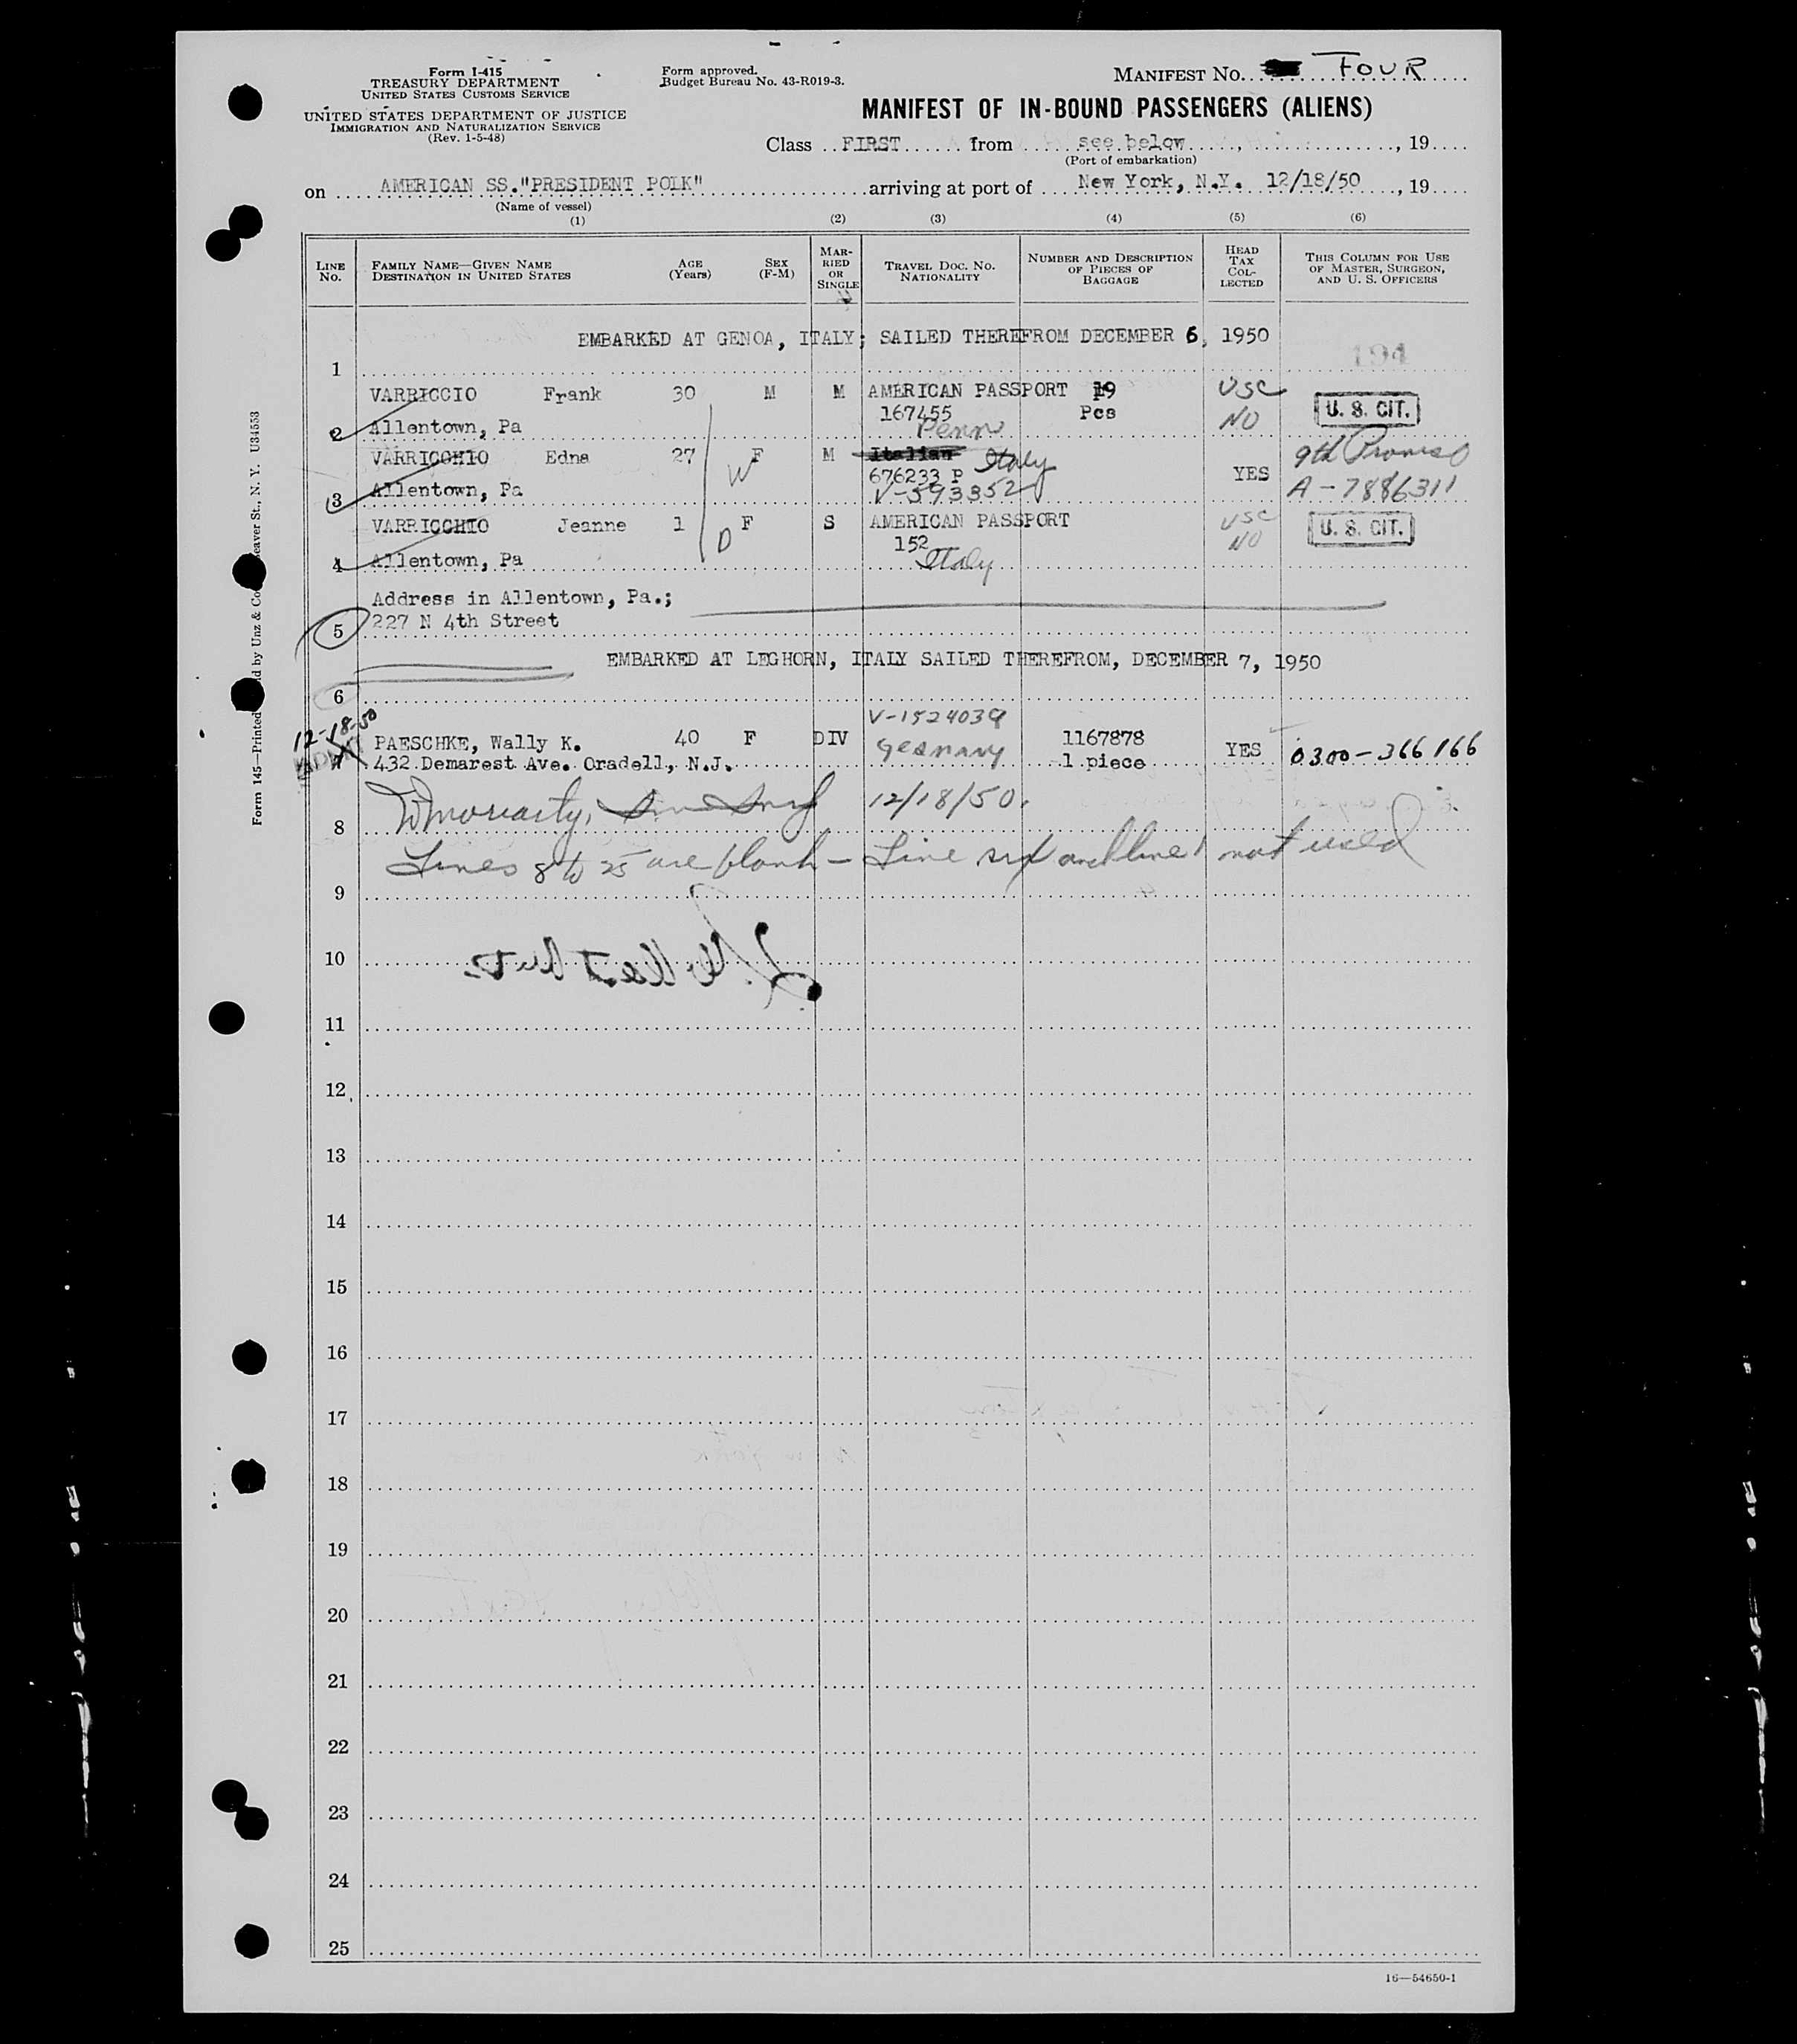 Form I-415
TREASURY DEPARTMENT
UNITED STATES CUSTOMS SERVICE
UNITED STATES DEPARTMENT OF JUSTICE
IMMIGRATION AND NATURALIZATION SERVICE
(Rev. 1-5-48)
Form approved.
Budget Bureau No. 43-R019-3.
MANIFEST NO. FOUR
MANIFEST OF IN-BOUND PASSENGERS (ALIENS)
Class FIRST from see below, , 19
(Port of embarkation)
on AMERICAN SS."PRESIDENT POLK" arriving at port of New York, N.Y. 12/18/50, 19
(Name of vessel)
(1) (2) (3) (4) (5) (6)
LINE NO.
FAMILY NAME—GIVEN NAME
DESTINATION IN UNITED STATES
AGE (Years)
SEX (F-M)
MARRIED OR SINGLE
TRAVEL DOC. NO.
NATIONALITY
NUMBER AND DESCRIPTION OF PIECES OF BAGGAGE
HEAD TAX COLLECTED
THIS COLUMN FOR USE OF MASTER, SURGEON, AND U. S. OFFICERS
EMBARKED AT GENOA, ITALY; SAILED THEREFROM DECEMBER 6, 1950
1
194
VARRICCIO Frank 30 M M AMERICAN PASSPORT 19 USC
167455 Pcs NO U. S. CIT.
2 Allentown, Pa Penn
VARRICCHIO Edna 27 W F M Italian Italy 9th Proviso
676233 P YES
3 Allentown, Pa V-593352 A-7886311
VARRICCHIO Jeanne 1 D F S AMERICAN PASSPORT USC U. S. CIT.
152 NO
4 Allentown, Pa Italy
Address in Allentown, Pa.;
5 227 N 4th Street
EMBARKED AT LEGHORN, ITALY SAILED THEREFROM, DECEMBER 7, 1950
6
12-18-50 V-1524039
PAESCHKE, Wally K. 40 F DIV Germany 1167878 YES 0300-366166
432 Demarest Ave. Oradell, N.J. 1 piece
Moriarty, 12/18/50.
8
Lines 8 to 25 are blank - Line six and line 1 not used
9
10
11
12
13
14
15
16
17
18
19
20
21
22
23
24
25
16—54650-1
Form 145—Printed
d by Unz & Co
eaver St., N. Y. U34553